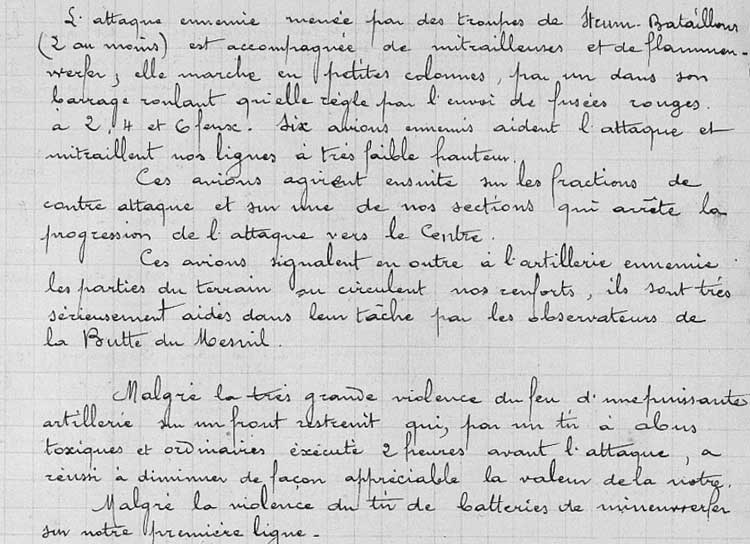 L'attaque ennemie menée par des troupes de Sturm-Bataillons
(2 au moins) est accompagnée de mitrailleuses et de flammen-
werfer, elle marche en petites colonnes, par un dans son
barrage roulant qu'elle règle par l'envoi de fusées rouges.
à 2, 4 et 6 feux. Six avions ennemis aident l'attaque et
mitraillent nos lignes à très faible hauteur.
Ces avions agirent ensuite sur les fractions de
contre attaque et sur une de nos sections qui arrête la
progression de l'attaque vers le Centre.
Ces avions signalent en outre à l'artillerie ennemie
les parties du terrain ou circulent nos renforts, ils sont très
sérieusement aidés dans leur tâche par les observateurs de
la Butte du Mesnil.
Malgré la très grande violence du feu d'une puissante
artillerie sur un front restreint qui, par un tir à obus
toxiques et ordinaires éxécuté 2 heures avant l'attaque, a
réussi à diminuer de façon appréciable la valeur de la notre.
Malgré la violence du tir de batteries de minenwerfer
sur notre première ligne.